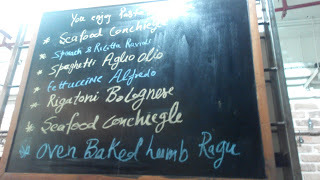 You enjoy
* Seafood Conchiegle
* Spinach & Ricotta Ravioli
* Spaghetti Aglio olio
* Fettuccine Alfredo
* Rigatoni Bolognese
* Seafood Conchiegle
* Oven Baked Lumb Ragu